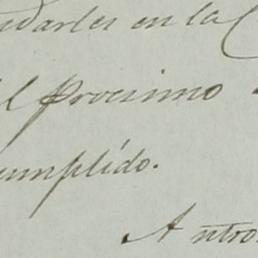 darles en la C
el procsimo
cumplído.
A ntro.